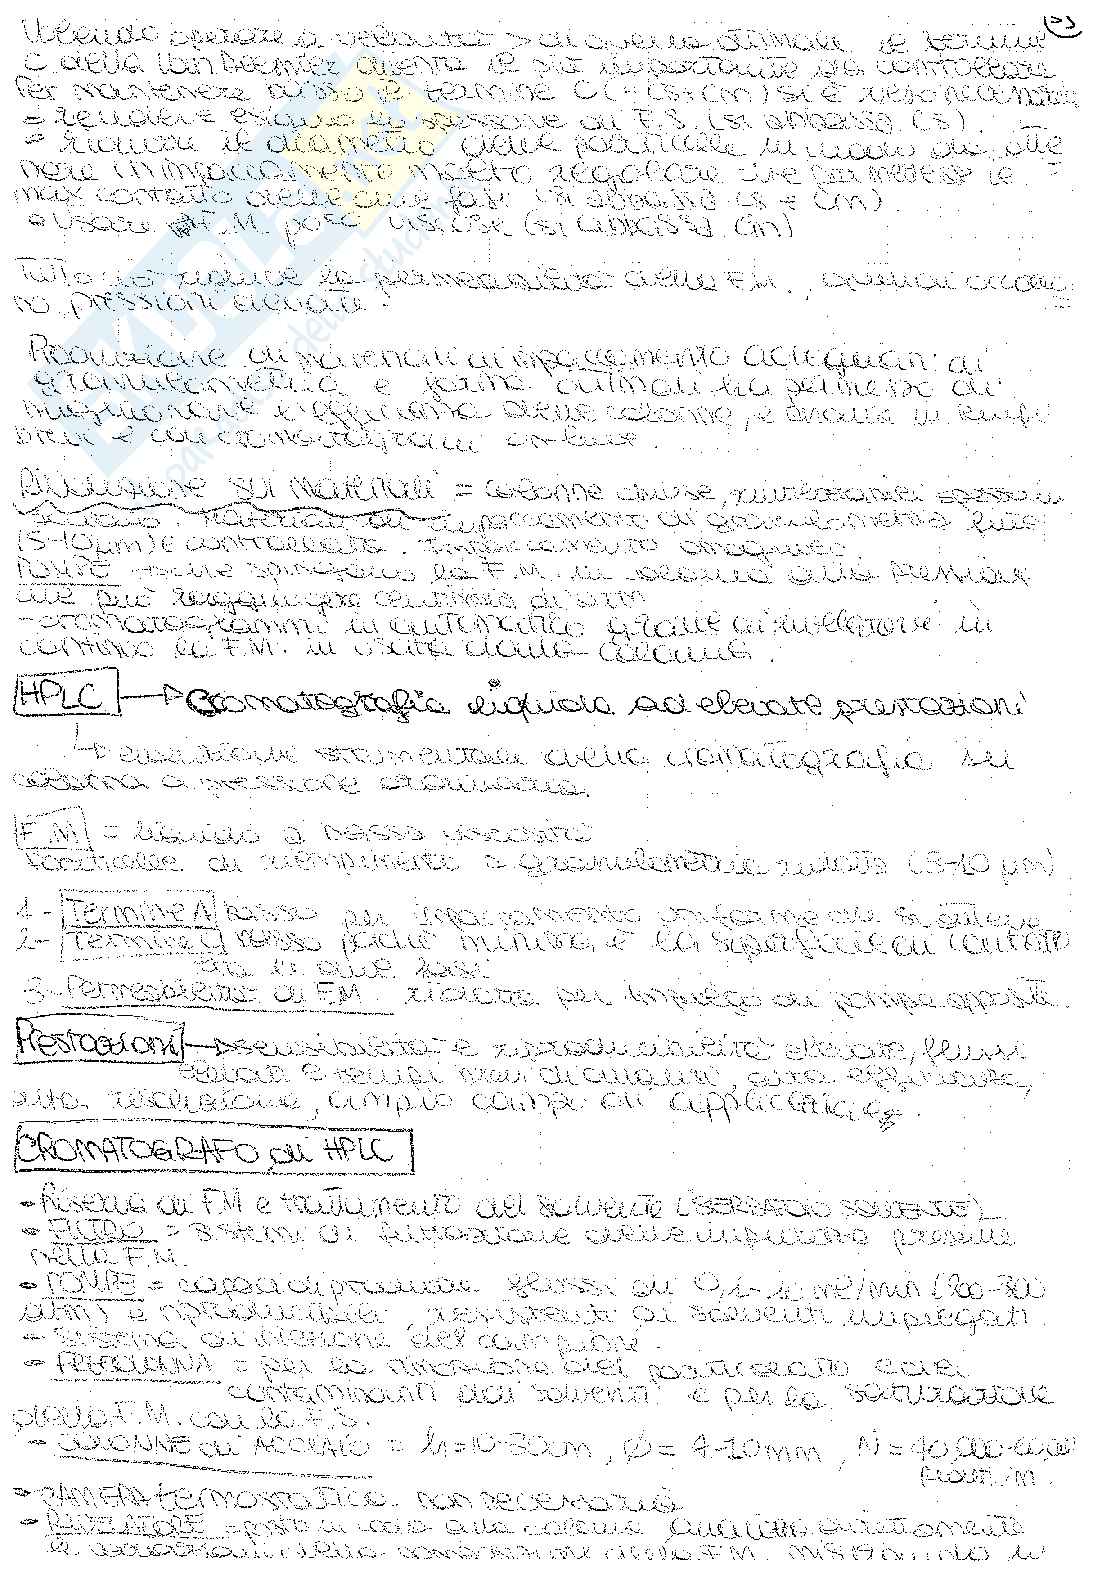 Volendo operare a velocità > di quella ottimale il termine
C della Van Deemter diventa il più importante da controllare
Per mantenere basso il termine C (= Cs + Cm) si è reso necessario
= rendere esiguo lo spessore di F.S. (si abbassa Cs).
= ridurre il diametro delle particelle in modo da otte
nere un impaccamento molto regolare che permette il
max contatto delle due fasi (si abbassa Cs e Cm)
• Usare F.M. poco viscose (si abbassa Cm)
Tutto ciò riduce la permeabilità della F.M., quindi occorro
no pressioni elevate.
Produzione di materiali di impaccamento adeguati di
granulometria e forma ottimali ha permesso di
migliorare l'efficienza delle colonne, e analisi in tempi
brevi e con cromatogrammi on-line.
Rivoluzione sui Materiali = colonne chiuse, riutilizzabili spesso in
acciaio. Materiali di impaccamento di granulometria fine
(5-10 μm) e controllata. Impaccamento omogeneo.
POMPE che spingono la F.M. in colonna alta pressione
che può raggiungere centinaia di atm
- cromatogrammi in automatico grazie ai rivelatori in
continuo la F.M. in uscita dalla colonna.
HPLC → Cromatografia liquida ad elevate prestazioni
↳ evoluzione strumentale della cromatografia su
colonna a pressione ordinaria.
F.M = liquido a bassa viscosità
Particelle di riempimento = granulometria ridotta (5-10 μm)
1- Termine A basso per impaccamento uniforme che si ottiene
2- Termine C basso perché minima è la superficie di contatto
tra le due fasi
3- Permeabilità di F.M. ridotta per impiego di pompe apposite.
Prestazioni → sensibilità e riproducibilità elevate, flussi
elevati e tempi brevi di analisi, alta efficienza,
alta risoluzione, ampio campo di applicazione.
CROMATOGRAFO di HPLC
- Riserva di F.M e trattamento del solvente (SERBATOIO SOLVENTE)
- FILTRO = sistemi di filtrazione delle impurezze presenti
nella F.M.
- POMPE = capaci di produrre flussi di 0,1-10 ml/min (200-300
atm) e riproducibili, resistenti ai solventi impiegati.
- Sistema di iniezione del campione.
- PRECOLONNA = per la rimozione del particolato e dei
contaminanti dai solventi e per la saturazione
della F.M. con la F.S.
- COLONNE di ACCIAIO = h=10-30cm, Ø= 4-10mm, N= 40.000-60.000
piatti/m.
- CAMERA termostatica non necessaria
- RIVELATORE = posto in coda alla colonna analizza direttamente
le variazioni della composizione della F.M. misurando